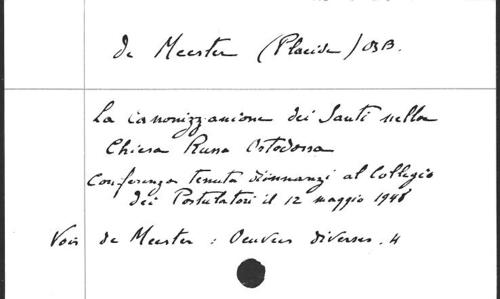 de Meester (Placide) OSB.
La canonizzazione dei Santi nella
Chiesa Russa Ortodossa
Conferenza tenuta dinnanzi al Collegio
dei Postulatori il 12 maggio 1948
Voir de Meester : Oeuvres diverses. 4